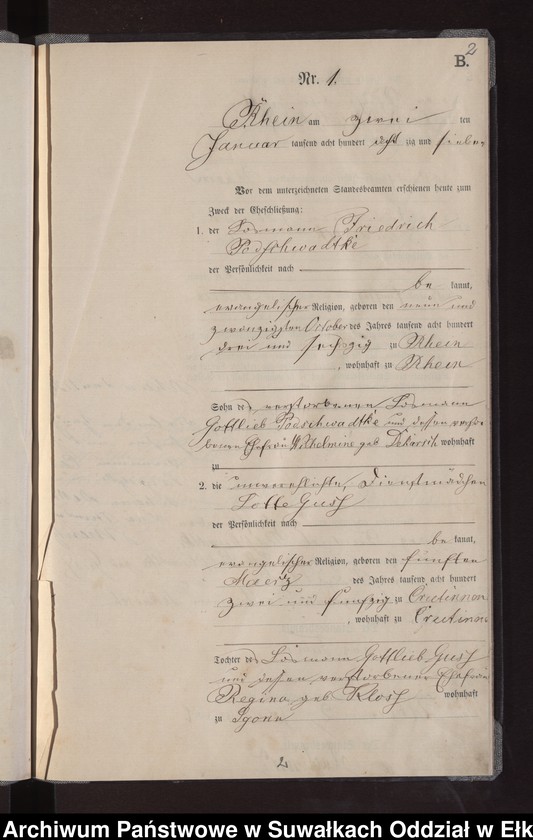 2
B.
Nr. 1.
Rhein am zwei ten
Januar tausend acht hundert acht zig und sieben
Vor dem unterzeichneten Standesbeamten erschienen heute zum
Zweck der Eheschließung:
1. der Losmann Friedrich
Podschwadtke
der Persönlichkeit nach
be kannt,
evangelischer Religion, geboren den neun und
zwanzigsten October des Jahres tausend acht hundert
drei und sechszig zu Rhein
, wohnhaft zu Rhein
Sohn des verstorbenen Losmann
Gottlieb Podschwadtke und dessen verstor
benen Ehefrau Wilhelmine geb wohnhaft
zu
2. die unverehlichte, Dienstmädchen
Lotte Gush
der Persönlichkeit nach
be kannt,
evangelischer Religion, geboren den fünften
Maerz des Jahres tausend acht hundert
zwei und fünfzig zu
, wohnhaft zu
Tochter des Losmann Gottlieb Gush
und dessen verstorbener Ehefrau
Regina geb Klosh wohnhaft
zu
2
Archiwum Państwowe w Suwałkach Oddział w Ełk